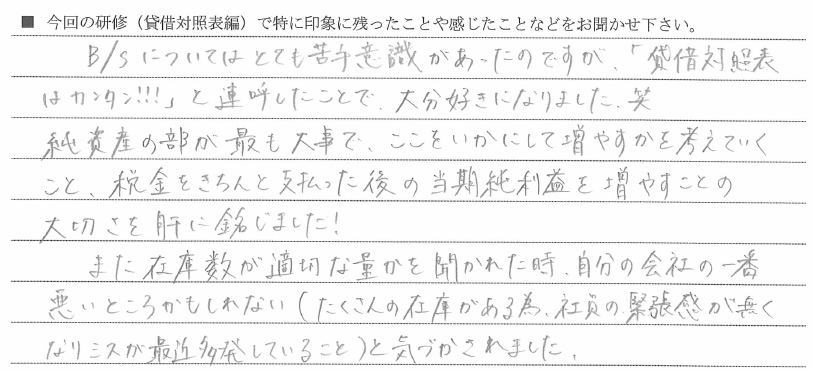 ■ 今回の研修（貸借対照表編）で特に印象に残ったことや感じたことなどをお聞かせ下さい。
B/Sについてはとても苦手意識があったのですが、「貸借対照表
はカンタン!!!」と連呼したことで、大分好きになりました.笑
純資産の部が最も大事で、ここをいかにして増やすかを考えていく
こと、税金をきちんと支払った後の当期純利益を増やすことの
大切さを肝に銘じました!
また在庫数が適切な量かを聞かれた時、自分の会社の一番
悪いところかもしれない(たくさんの在庫がある為、社員の緊張感が無く
なりミスが最近多発していること)と気づかされました。